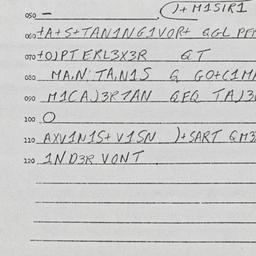 )+M1S1R1
050 —
060 +A+S+TAN1NG1VOR+ QGL PEM
070 +O)PT ERL3X3R QT
080 MA,N,TA,N1S Q GO+C1MA
090 M1CA)3R7AN QFQ TAJ3
100 O
110 AXV1N1S+V1SN )+SART QM3
120 1ND3R VONT